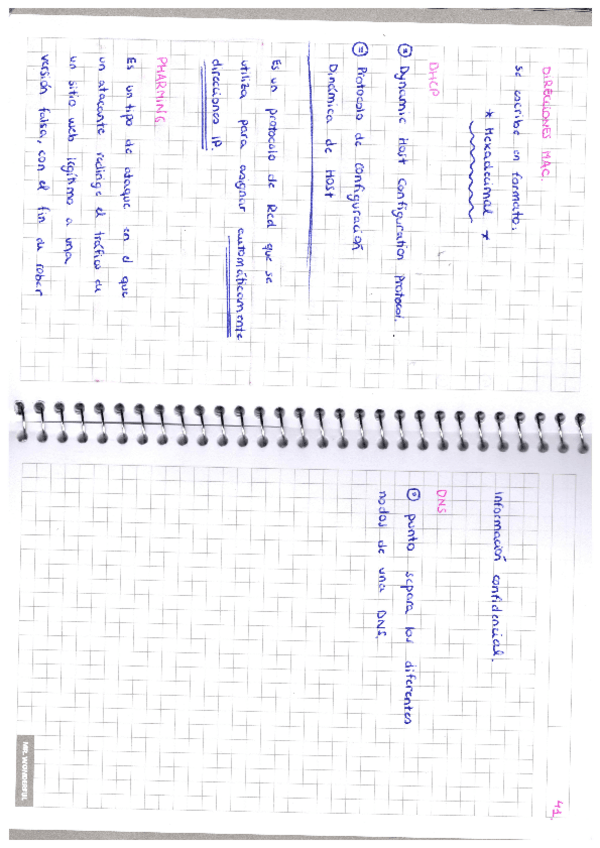 DIRECCIONES MAC.
se escribe en formato:
* Hexadecimal *
DHCP
* Dynamic Host Configuration Protocol.
= Protocolo de configuración
Dinámica de Host
Es un protocolo de Red que se
utiliza para asignar automáticamente
direcciones IP.
PHARMING.
Es un tipo de ataque en el que
un atacante redirige el tráfico de
un sitio web legítimo a una
versión falsa, con el fin de robar
41.
información confidencial.
DNS
punto separa los diferentes
nodos de una DNS.
MR. WONDERFUL